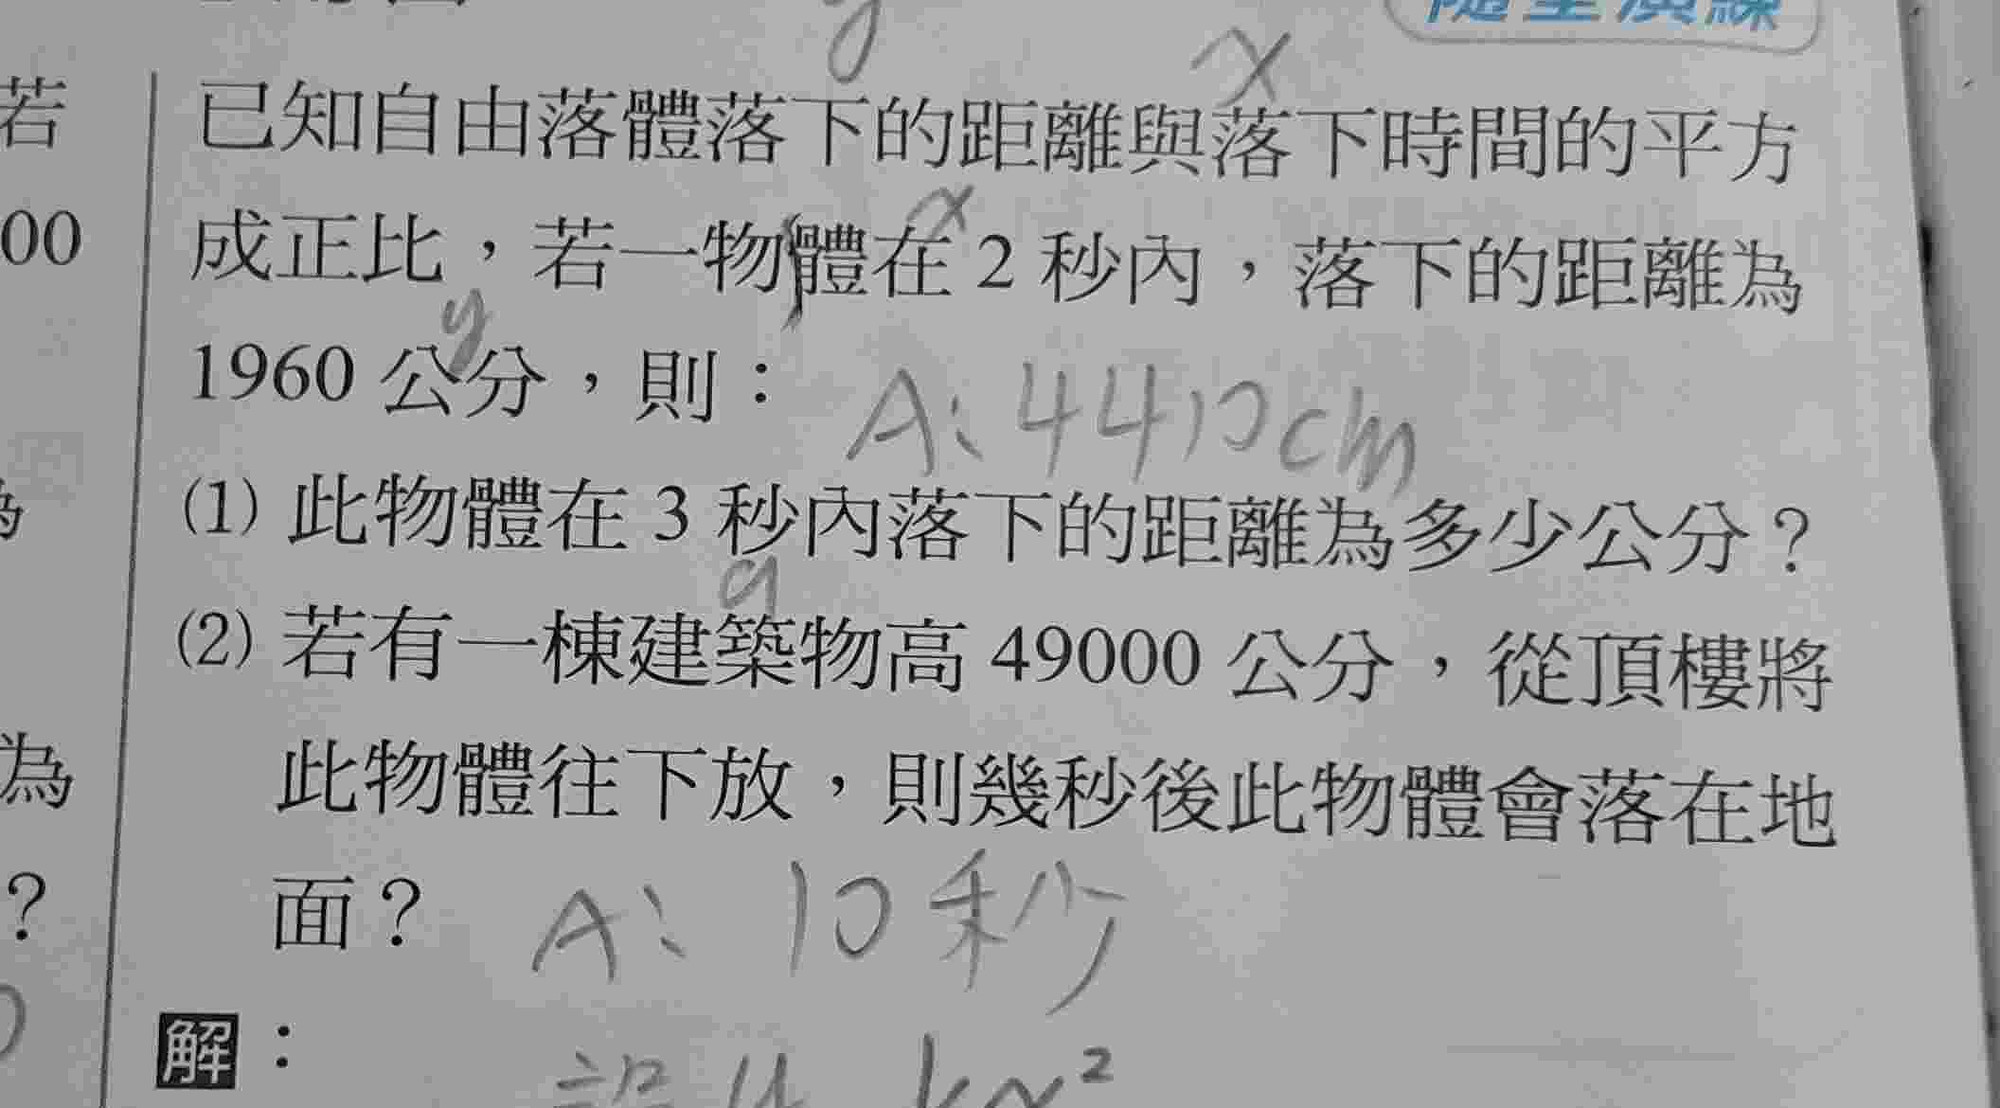 隨堂演練
y
x
若
已知自由落體落下的距離與落下時間的平方
x
00
成正比，若一物體在 2 秒內，落下的距離為
y
1960 公分，則：
A: 4410cm
(1) 此物體在 3 秒內落下的距離為多少公分？
(2) 若有一棟建築物高 49000 公分，從頂樓將
為
此物體往下放，則幾秒後此物體會落在地
？
面？ A: 10秒
解：
設 y kx²